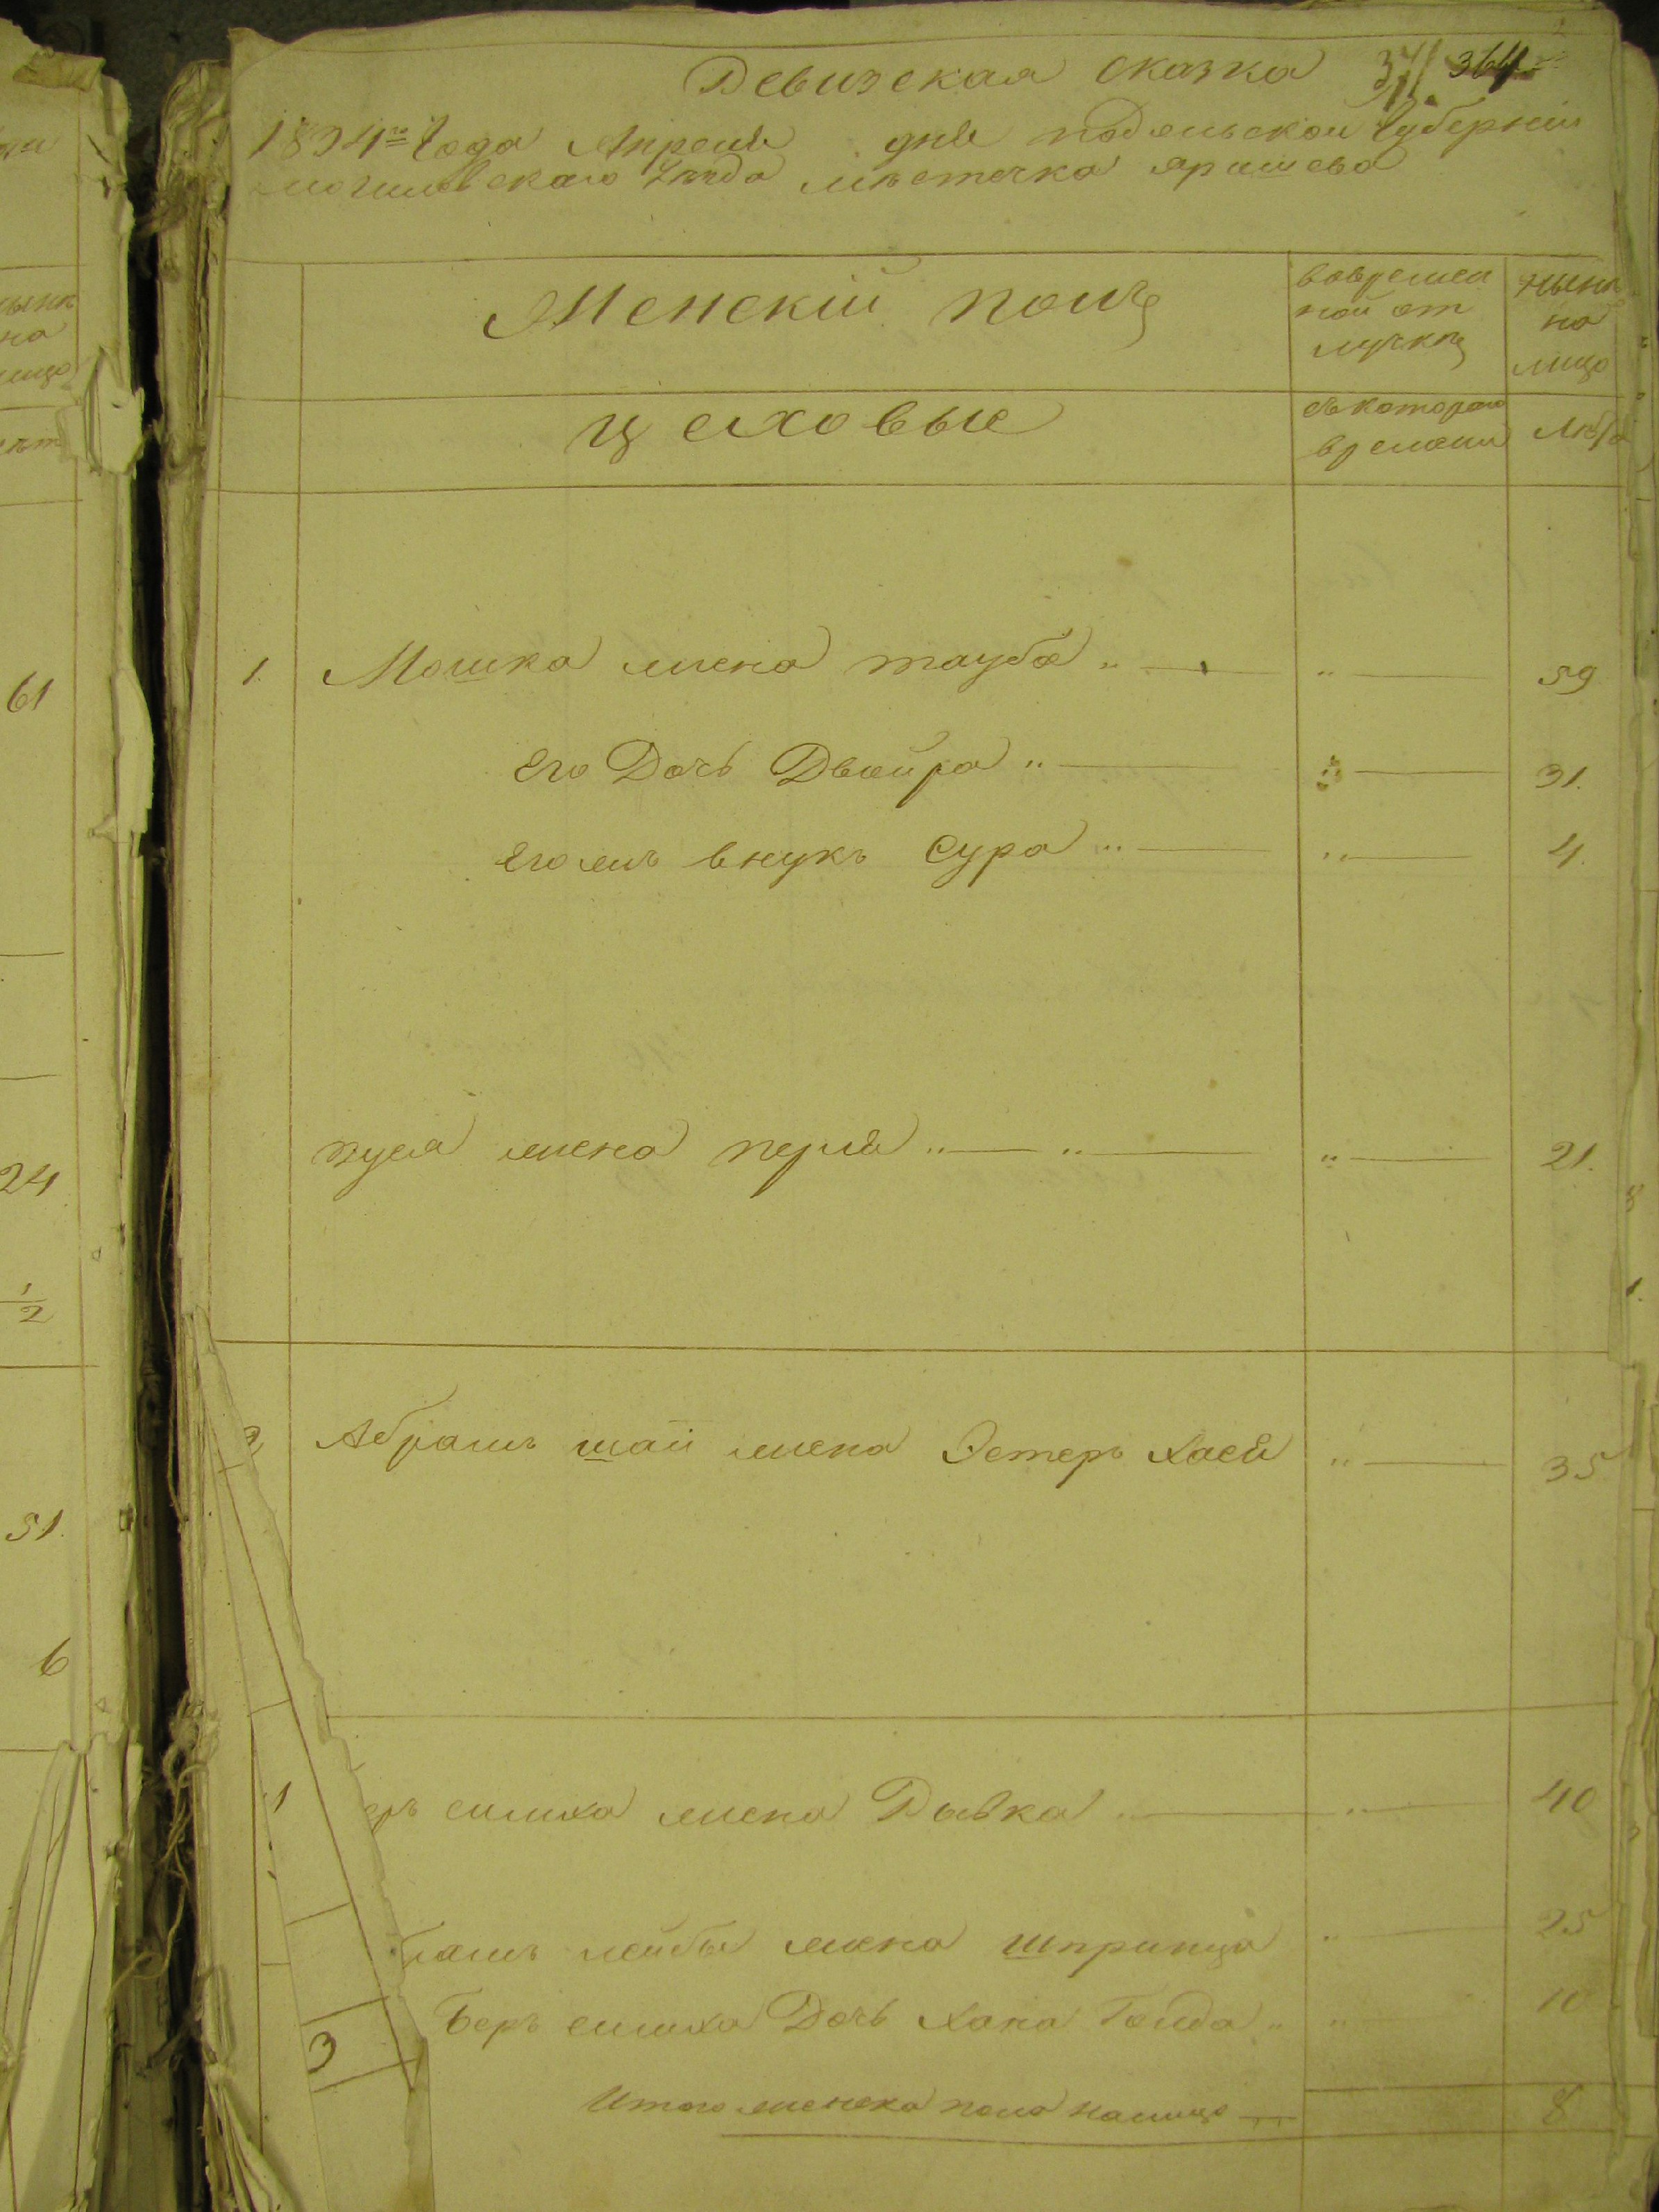 Ревизская сказка 371 364
1834го Года Апреля дня подольской Губернии
могилевскаго уезда местечка яришева
Женскій полъ
вовремен
ной от
лучкъ
ныне
на
лицо
цеховые
съ котораго
времени
Лета
1. Мошка жена тауба „ — „ — 59
Его Дочь Двойра „ — „ — 31.
Его жъ внукъ Сура „ — „ — 4.
жена перля „ — „ — „ — 21.
2 Абрамъ шай жена Эстеръ Хася „ — 35
еръ симха жена Рывка „ — „ — 40
рамъ лейбы жена шпринца „ — 25
3 Беръ симха Дочь Хана Голда „ „ 10
Итого женска пола налицо — 8
61
24
1/2
51.
6